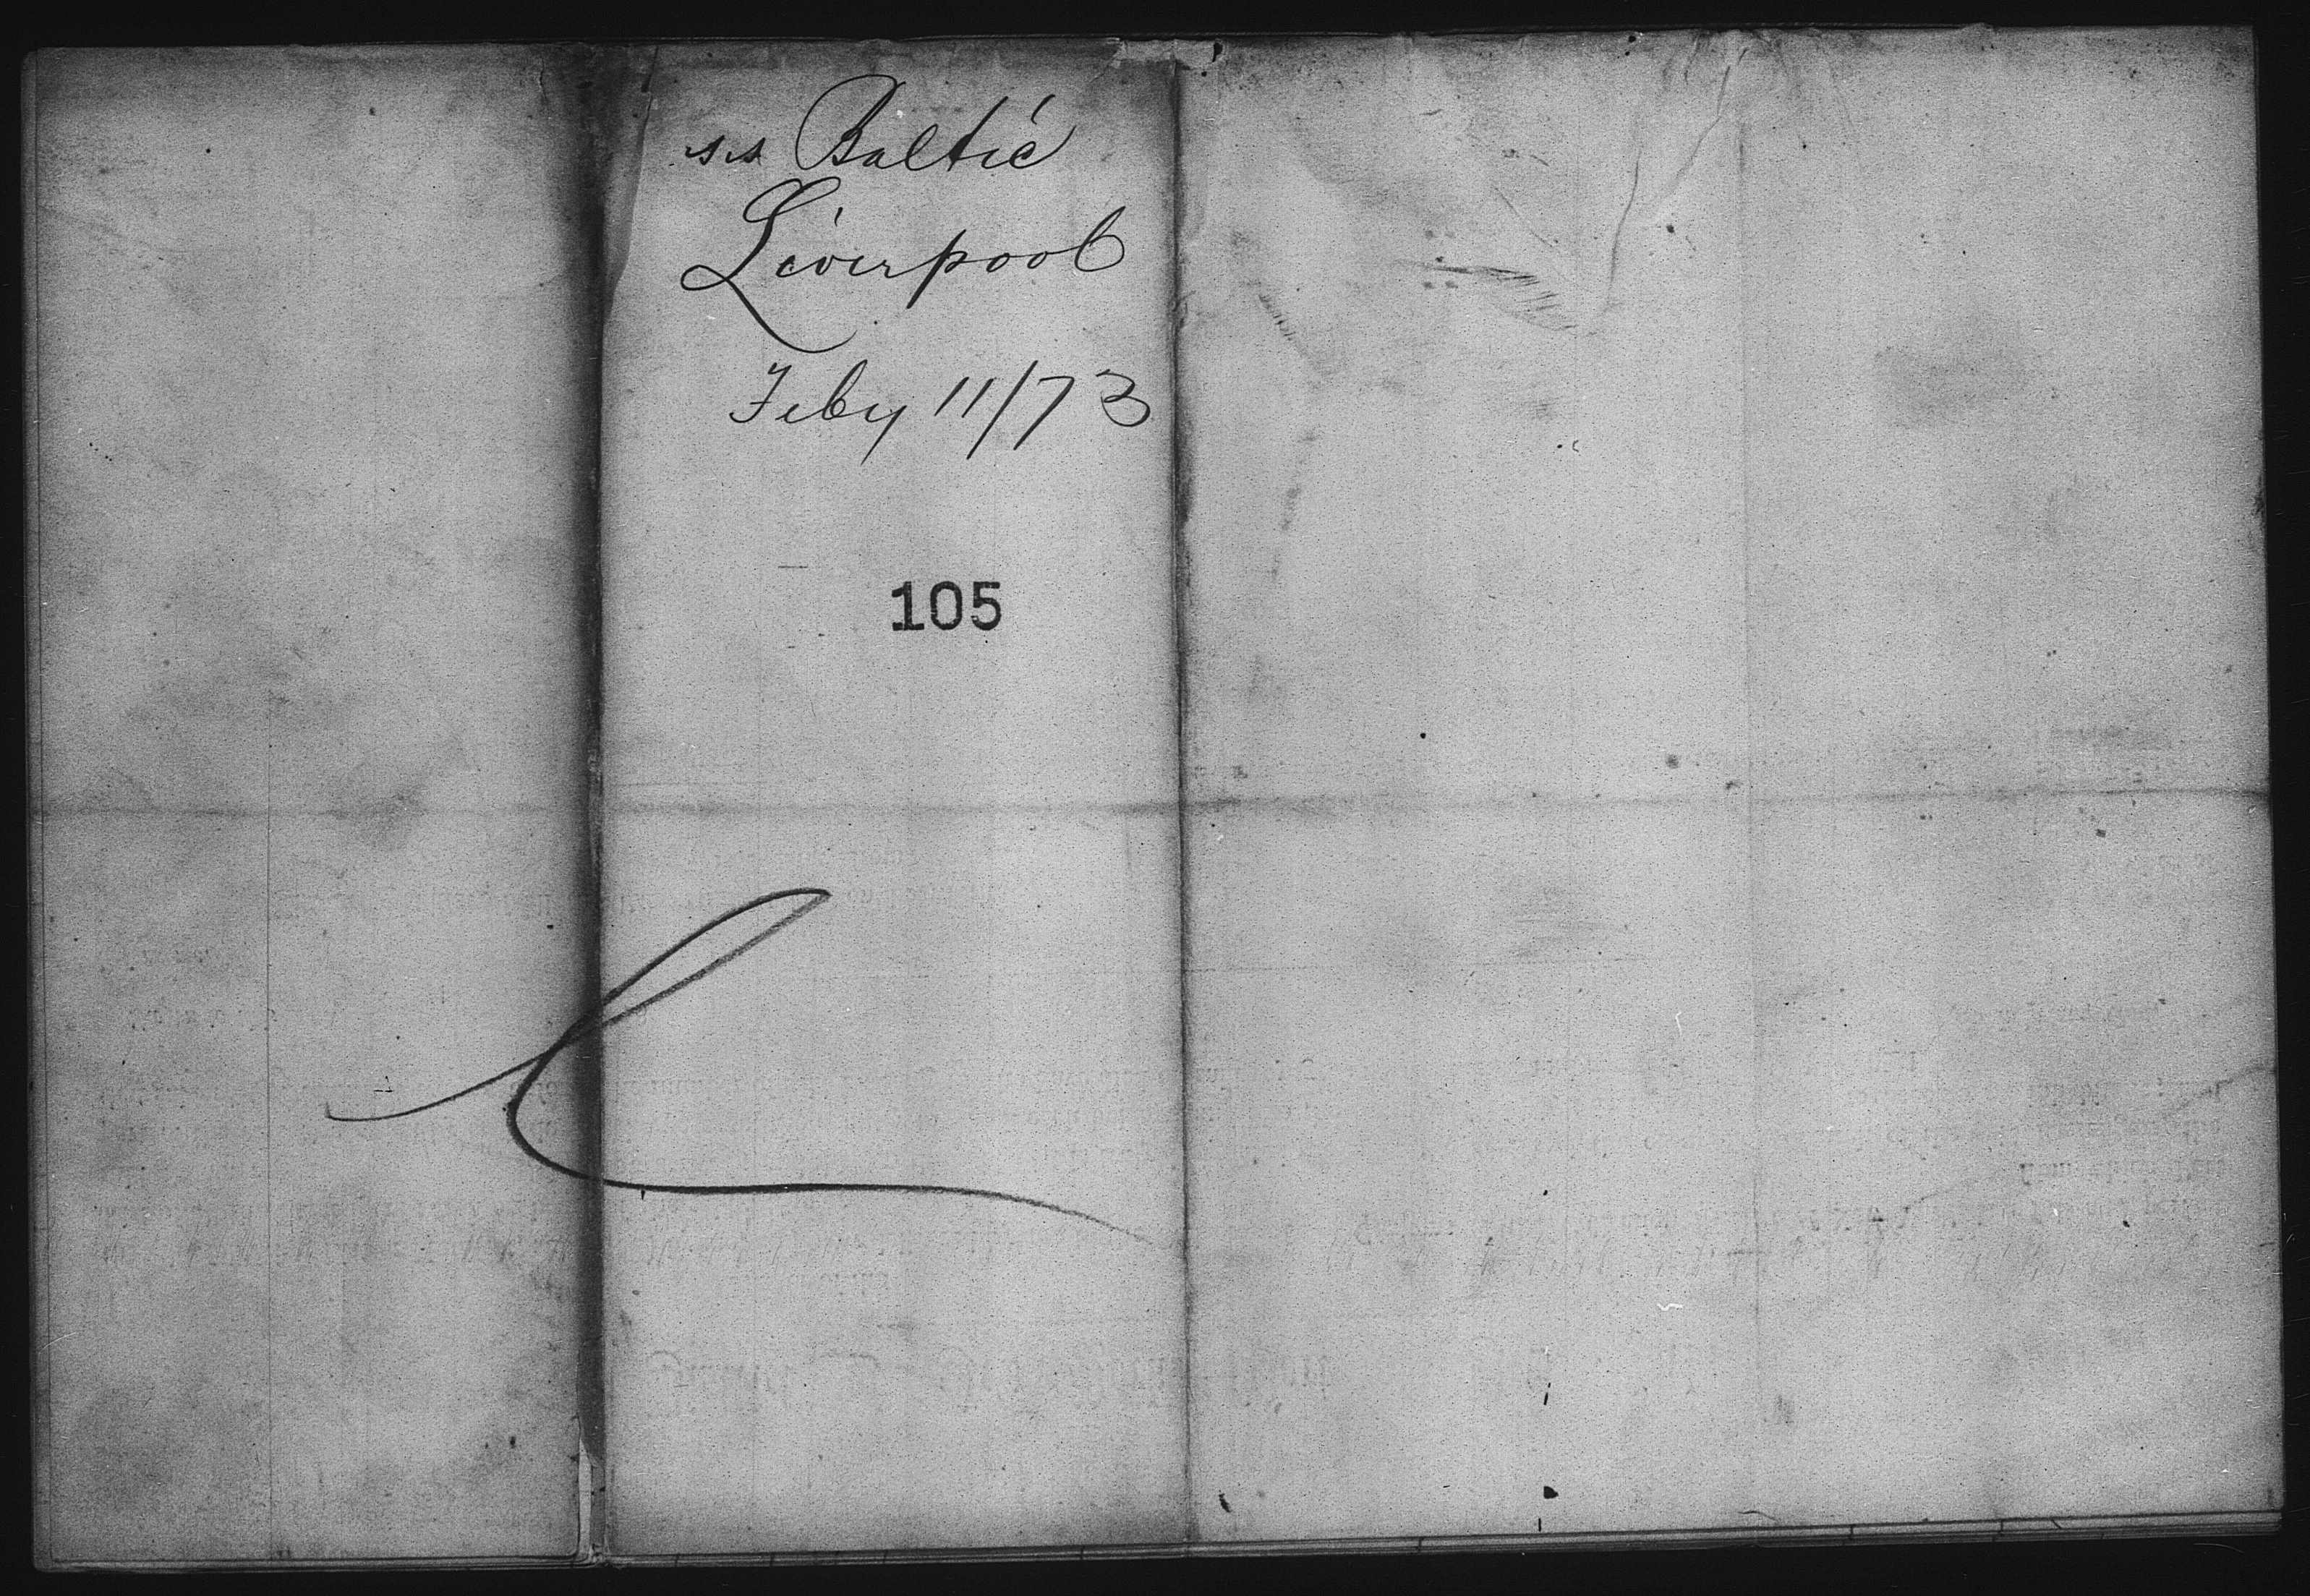 ss Baltic
Liverpool
Feby 11/73
105